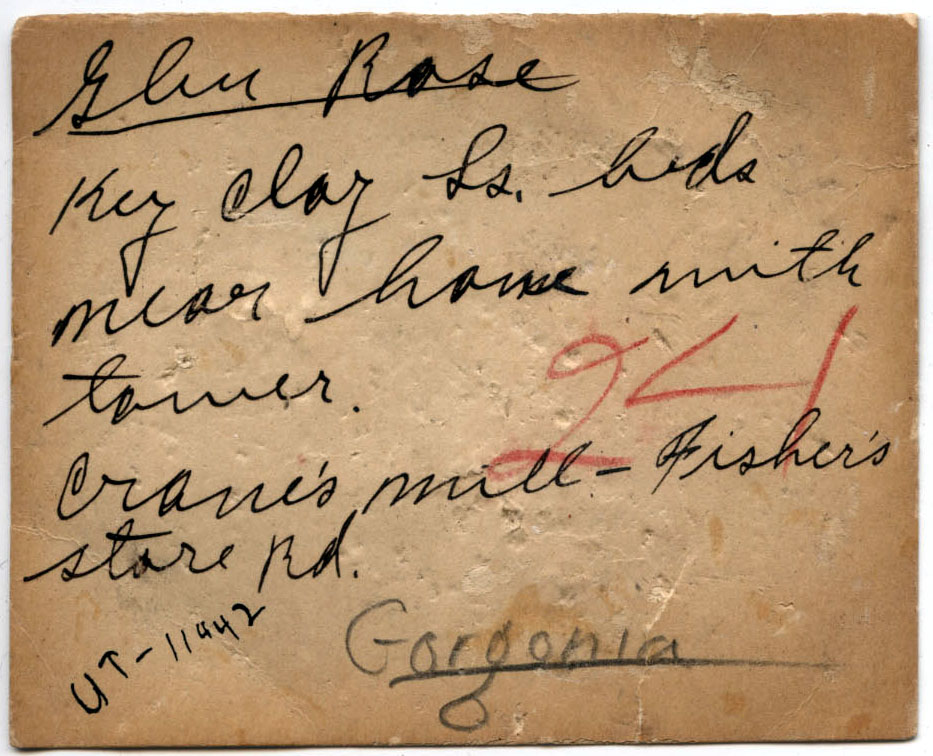 Glen Rose
Key clay Ls. beds
near house with
tower.
241
Crane's mill - Fisher's
store Rd.
UT-11442
Gorgonia